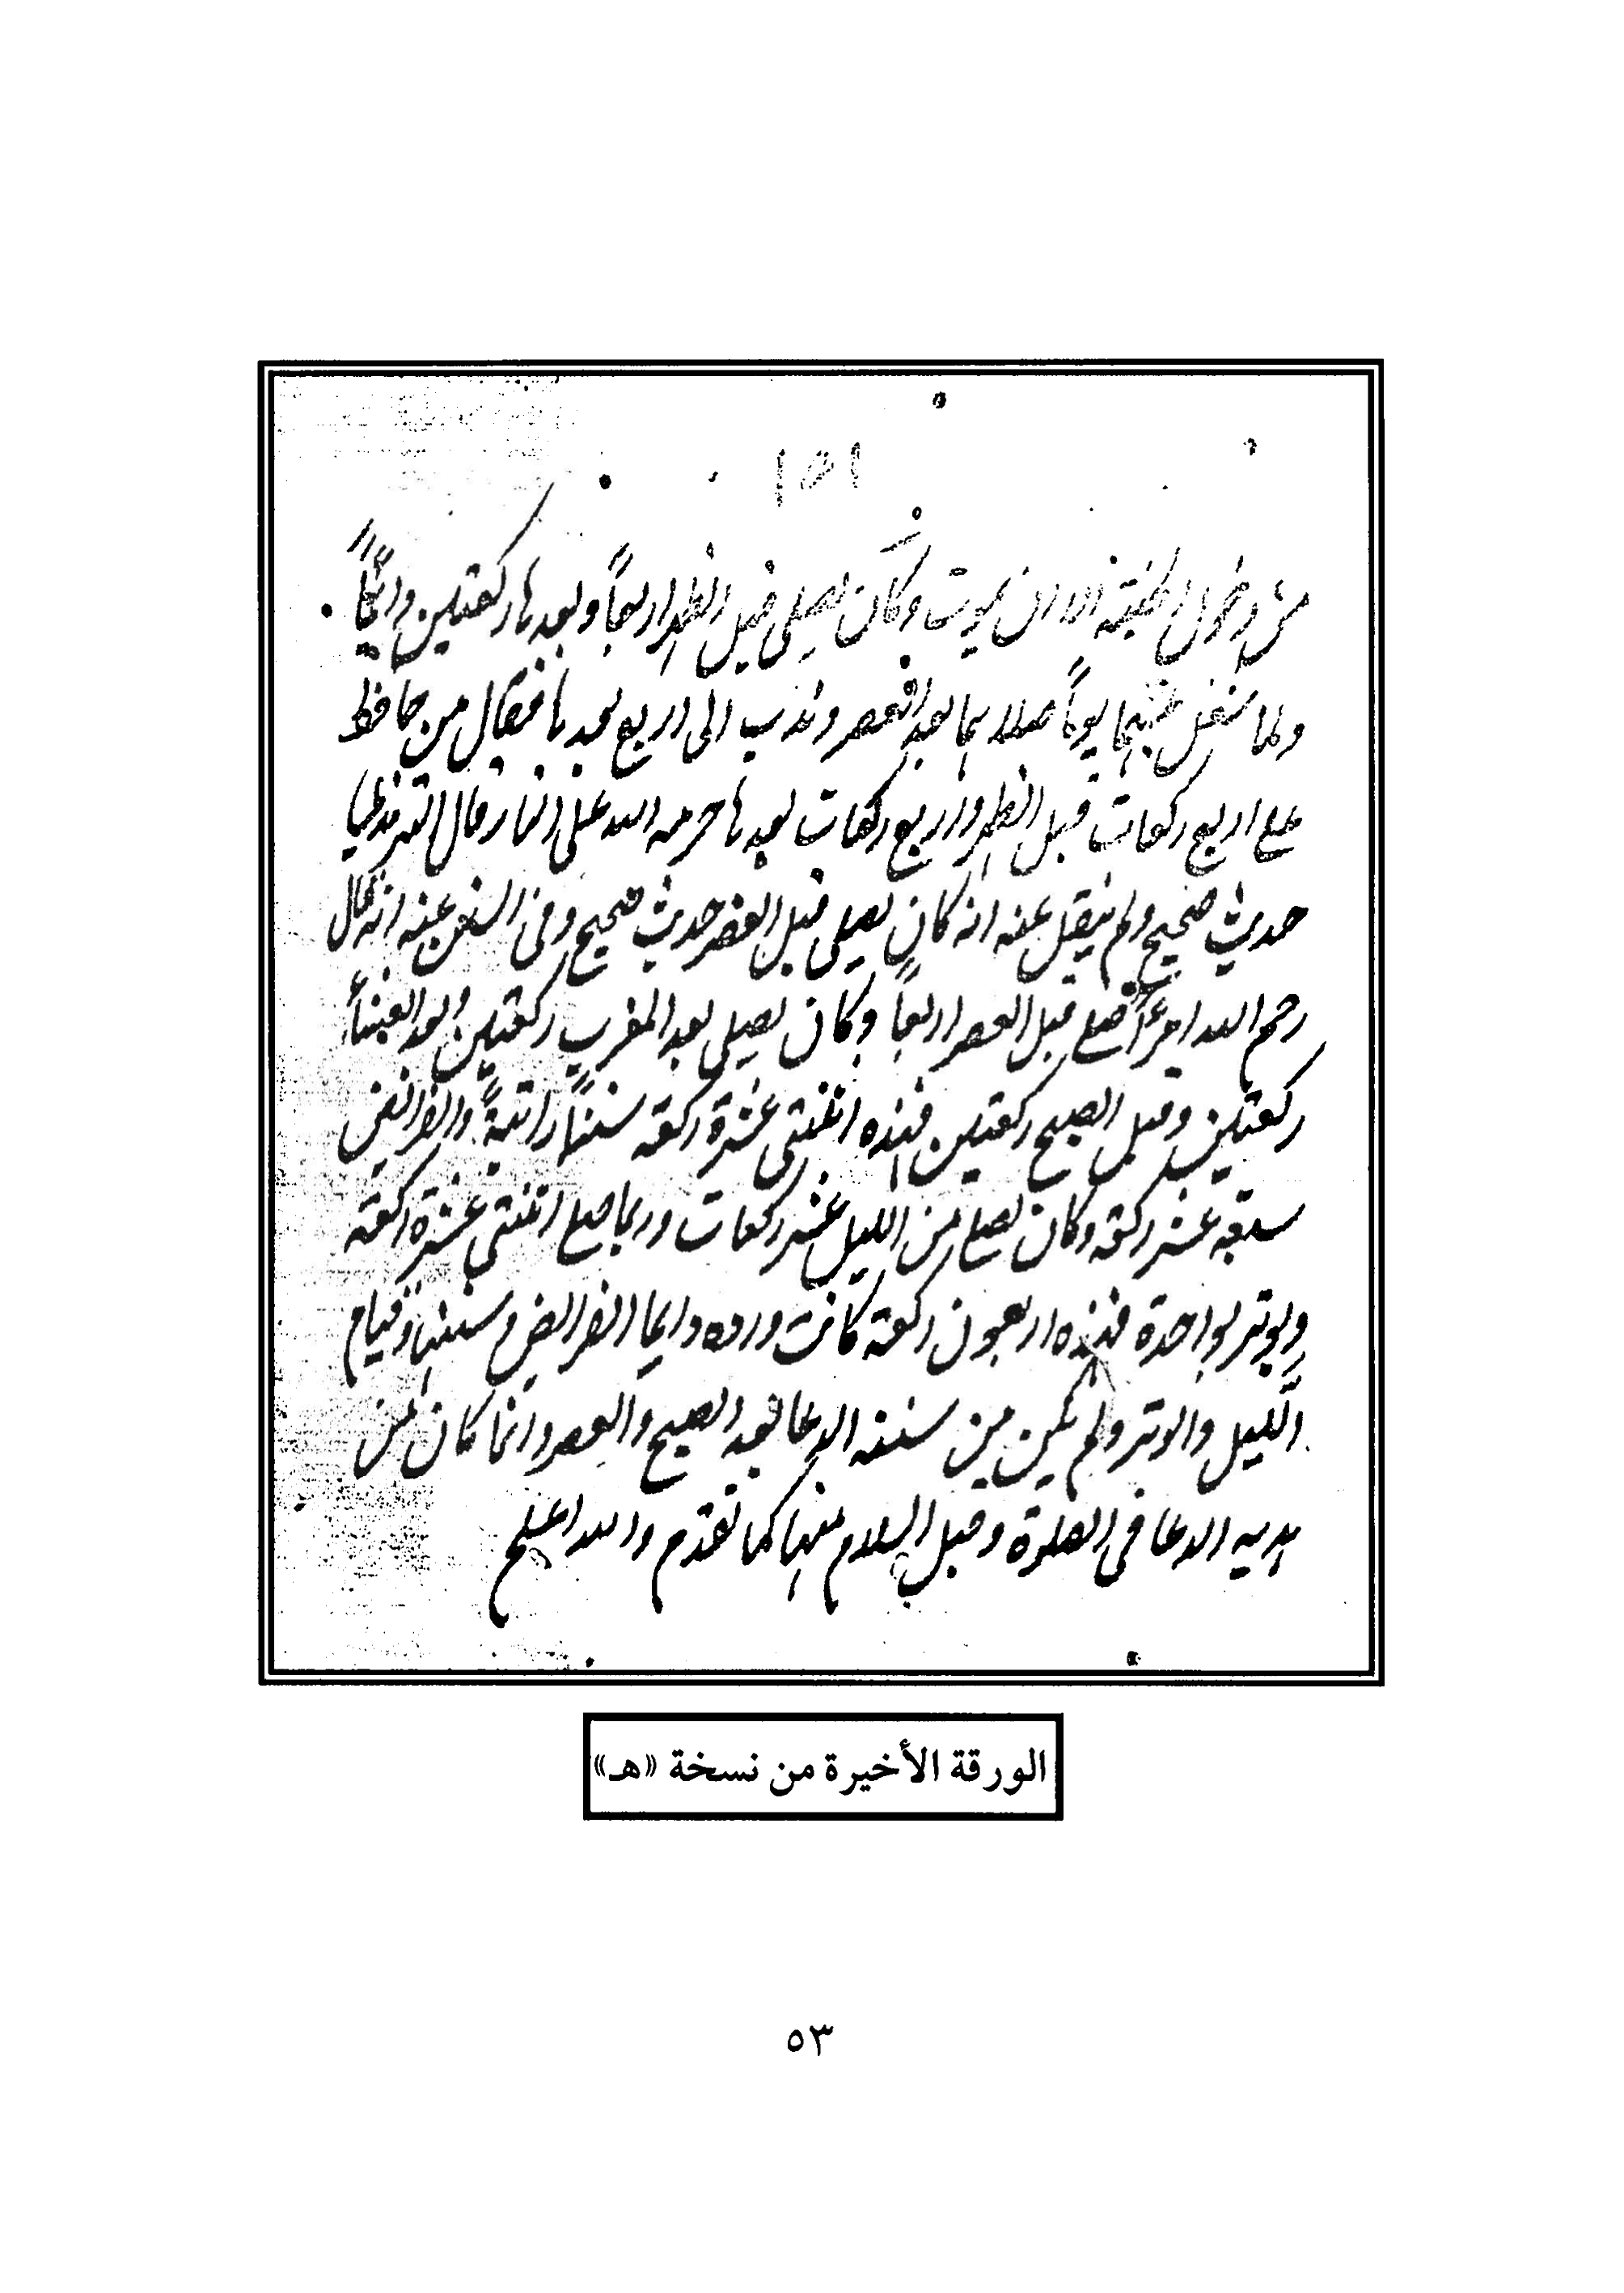 ١٥١
من دخول الجنة الا ان يموت وكان يصلى قبل الظهر اربعاً وبعدها ركعتين دائماً
ولما شغل عنهما يوماً صلاهما بعد العصر وندب الى اربع بعدها فقال من حافظ
على اربع ركعات قبل الظهر واربع ركعات بعدها حرمه الله على النار قال الترمذي
حديث صحيح ولم ينقل عنه انه كان يصلى قبل العصر حديث صحيح وفى السنن عنه انه قال
رحم الله امرءاً صلى قبل العصر اربعاً وكان يصلى بعد المغرب ركعتين وبعد العشاء
ركعتين وقبل الصبح ركعتين فهذه اثنتى عشرة ركعة سنناً راتبةً والفرائض
سبعة عشر ركعة وكان يصلى من الليل عشر ركعات وربما صلى اثنتى عشرة ركعة
ويوتر بواحدة فهذه اربعون ركعة كانت ورده دايما الفرائض وسننها وقيام
الليل والوتر ولم يكن من سنته الدعا بعد الصبح والعصر وانما كان من
هديه الدعا فى الصلوة وقبل السلام منها كما تقدم والله اعلم
الورقة الأخيرة من نسخة «هـ»
٥٣